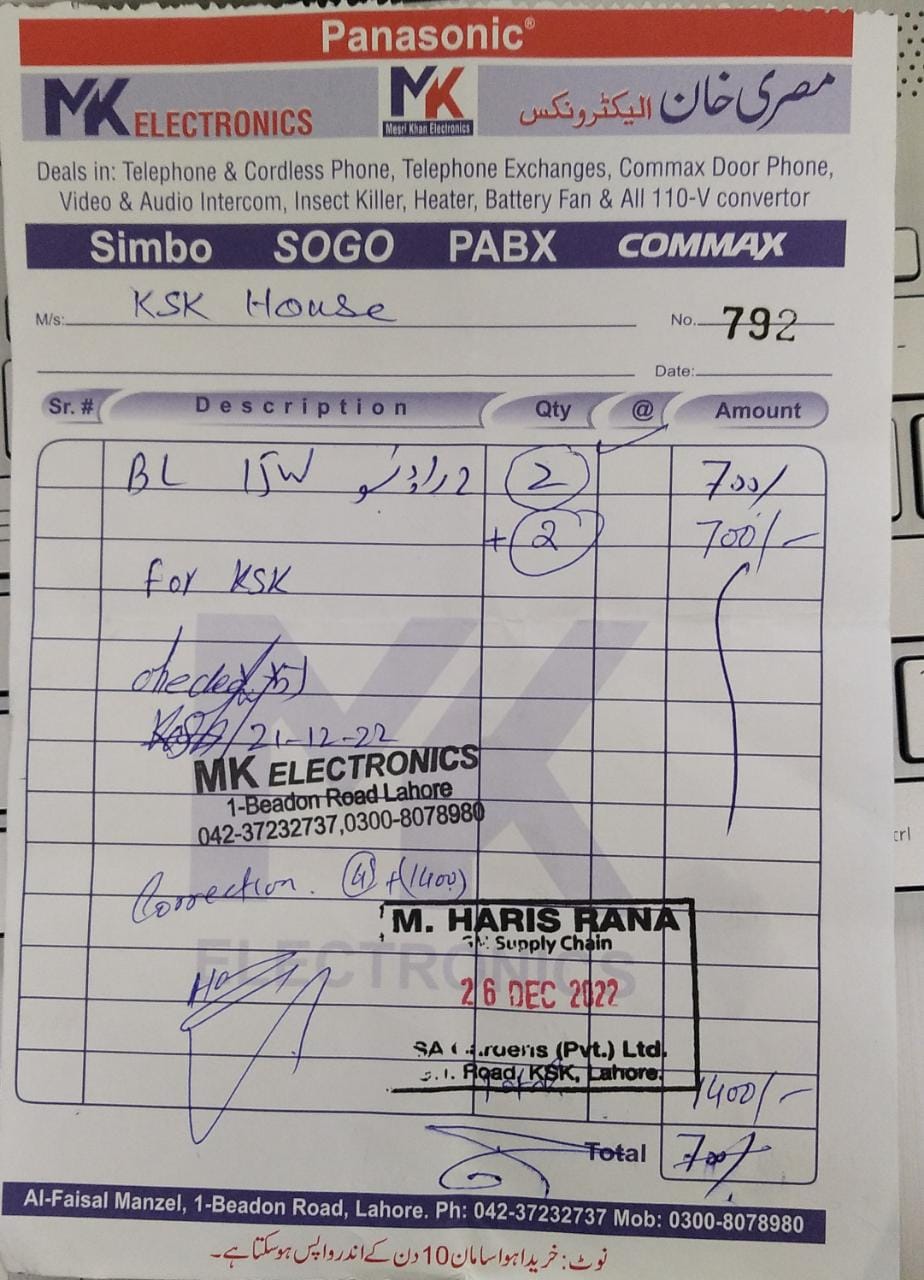 Panasonic®
MK ELECTRONICS
MK
Mesri Khan Electronics
مصری خان الیکٹرونکس
Deals in: Telephone & Cordless Phone, Telephone Exchanges, Commax Door Phone,
Video & Audio Intercom, Insect Killer, Heater, Battery Fan & All 110-V convertor
Simbo SOGO PABX COMMAX
M/s: KSK House
No. 792
Date:
Sr. # Description Qty @ Amount
BL 15W 2 700/
+ 2 700/-
for KSK
21-12-22
MK ELECTRONICS
1-Beadon Road Lahore
042-37232737,0300-8078980
Correction. 4 +(1400)
M. HARIS RANA
Supply Chain
26 DEC 2022
(Pvt.) Ltd.
Road, KSK, Lahore.
1400/-
Total 700/
MK
ELECTRONICS
Al-Faisal Manzel, 1-Beadon Road, Lahore. Ph: 042-37232737 Mob: 0300-8078980
نوٹ: خریدا ہوا سامان 10 دن کے اندر واپس ہو سکتا ہے۔